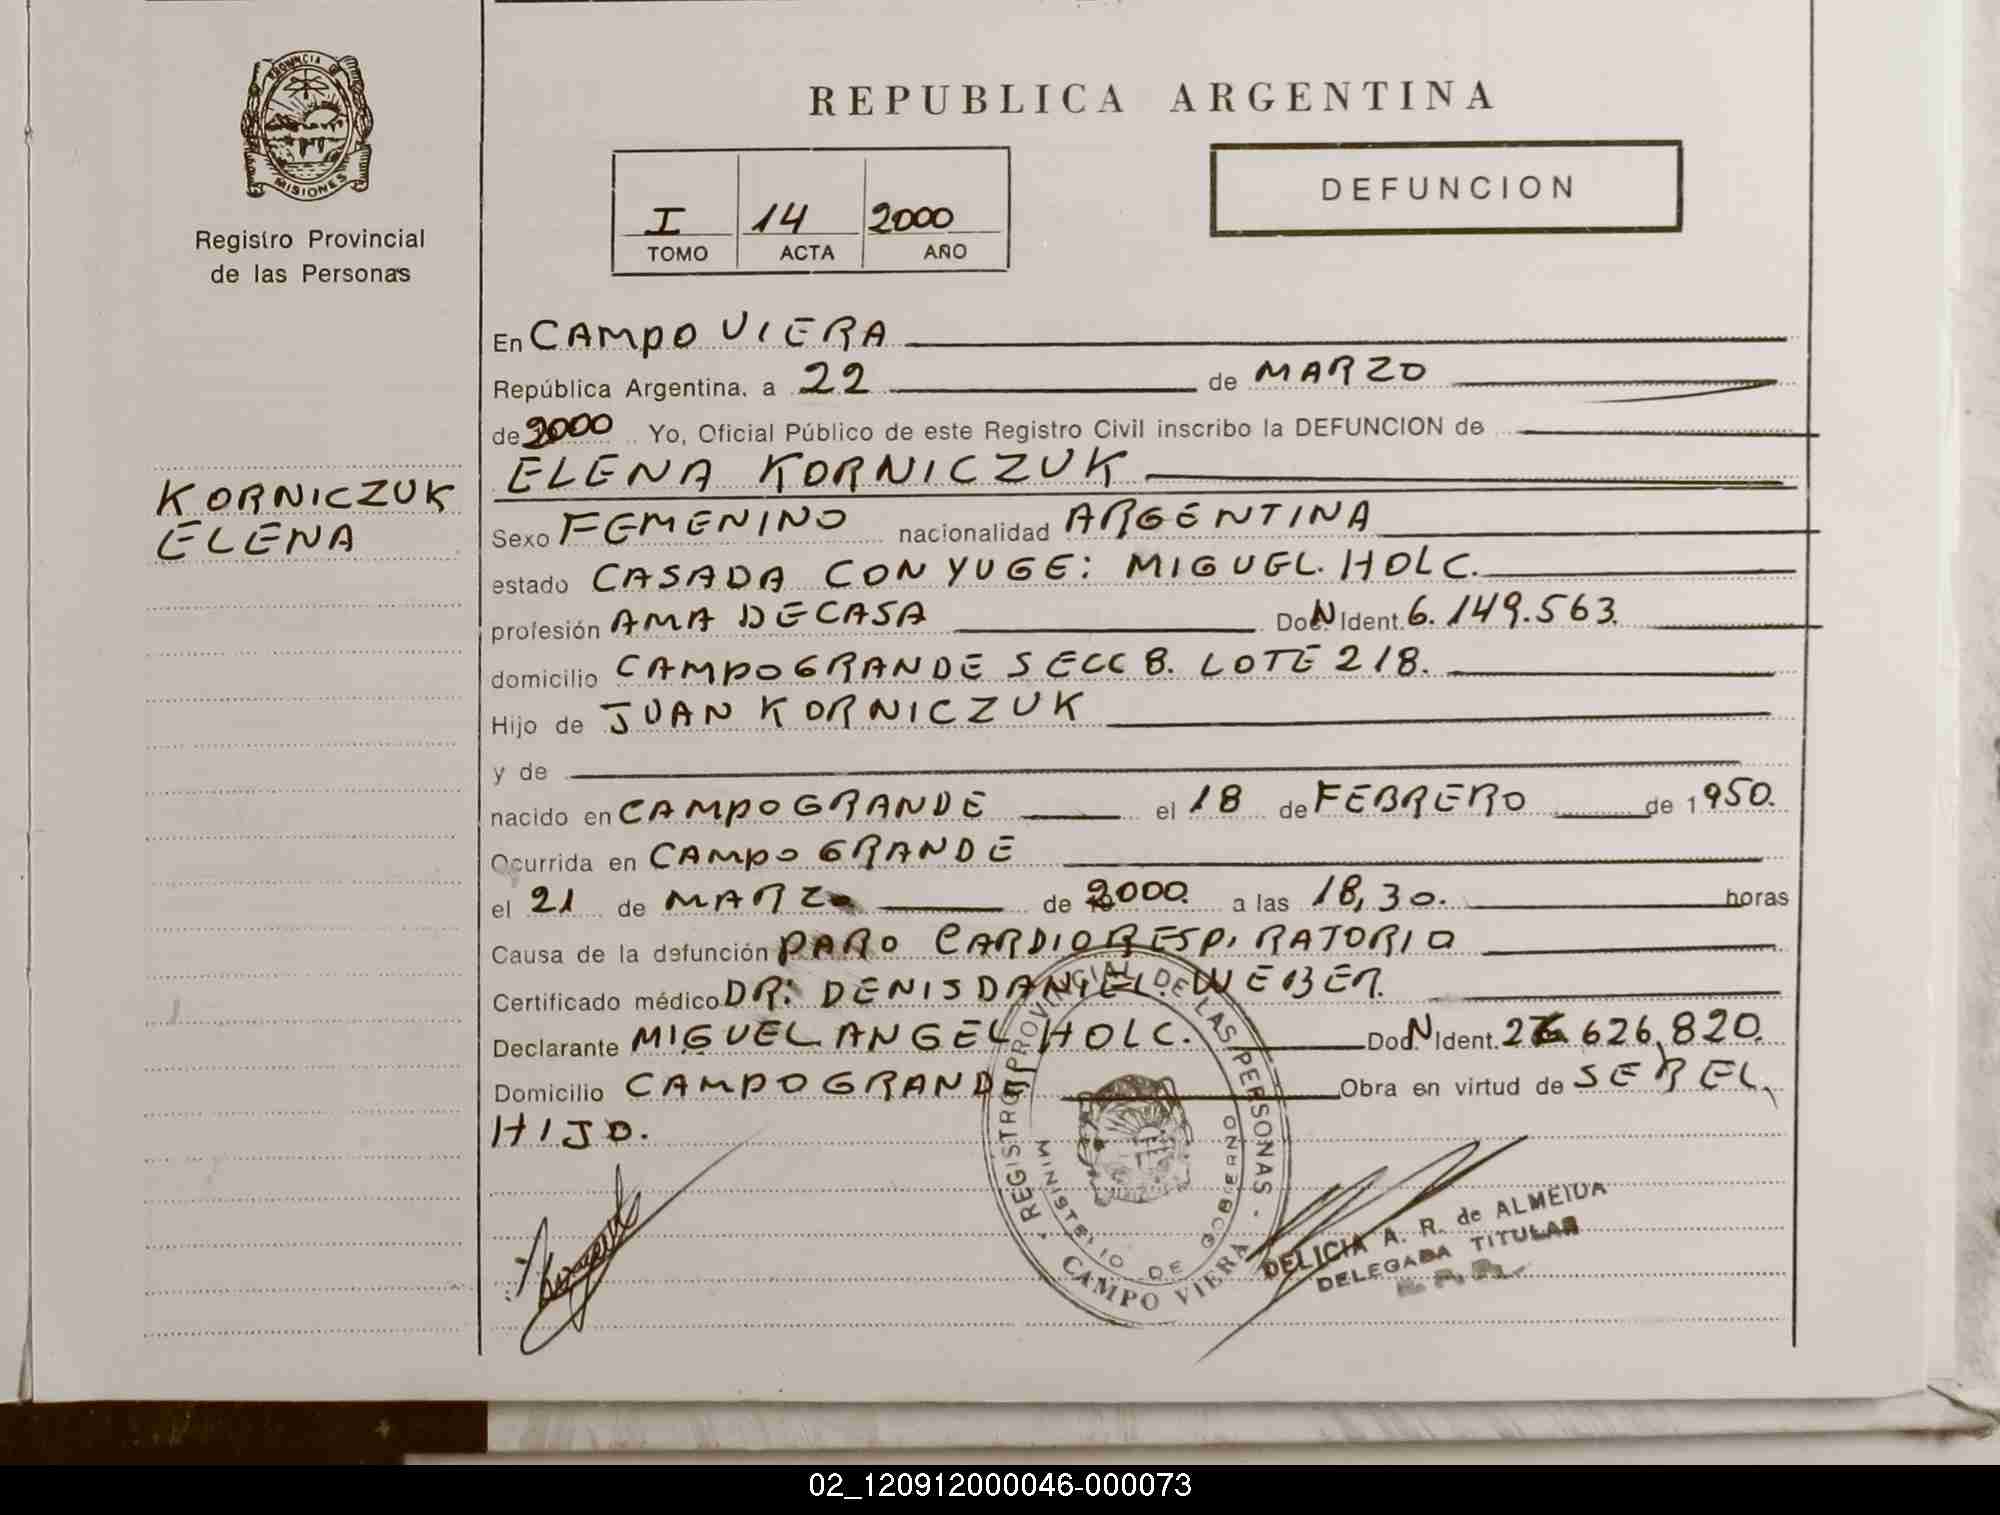 PROVINCIA DE
MISIONES
Registro Provincial
de las Personas
REPUBLICA ARGENTINA
DEFUNCION
I 14 2000
TOMO ACTA AÑO
En CAMPO VIERA
República Argentina, a 22 de MARZO
de 2000 Yo, Oficial Público de este Registro Civil inscribo la DEFUNCION de
ELENA KORNICZUK
KORNICZUK
ELENA
Sexo FEMENINO nacionalidad ARGENTINA
estado CASADA CONYUGE: MIGUEL HOLC.
profesión AMA DE CASA Doc. N Ident. 6.149.563.
domicilio CAMPO GRANDE SECC 8. LOTE 218.
Hijo de JUAN KORNICZUK
y de
nacido en CAMPO GRANDE el 18 de FEBRERO de 1950.
Ocurrida en CAMPO GRANDE
el 21 de MARZO de 2000. a las 18,30. horas
Causa de la defunción PARO CARDIORESPIRATORIO
Certificado médico DR: DENIS DANIEL WEBER.
Declarante MIGUEL ANGEL HOLC. Doc. N Ident. 26.626,820.
Domicilio CAMPO GRANDE Obra en virtud de SER EL
HIJO.
REGISTRO PROVINCIAL DE LAS PERSONAS
MINISTERIO DE GOBIERNO
CAMPO VIERA
DELICIA A. R. de ALMEIDA
DELEGADA TITULAR
02_120912000046-000073